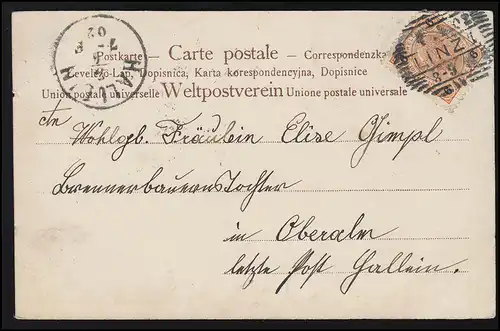 Postkarte — Carte postale — Correspondenzka
Levelező-Lap, Dopisnica, Karta korespondencyjna, Dopisnice
Union postale universelle Weltpostverein Unione postale universale
HALLEIN
02
LINZ
An
Wohlgeb. Fräulein Elise Gimpl
Brennerbauernstochter
in Oberalm
letzte Post Hallein.